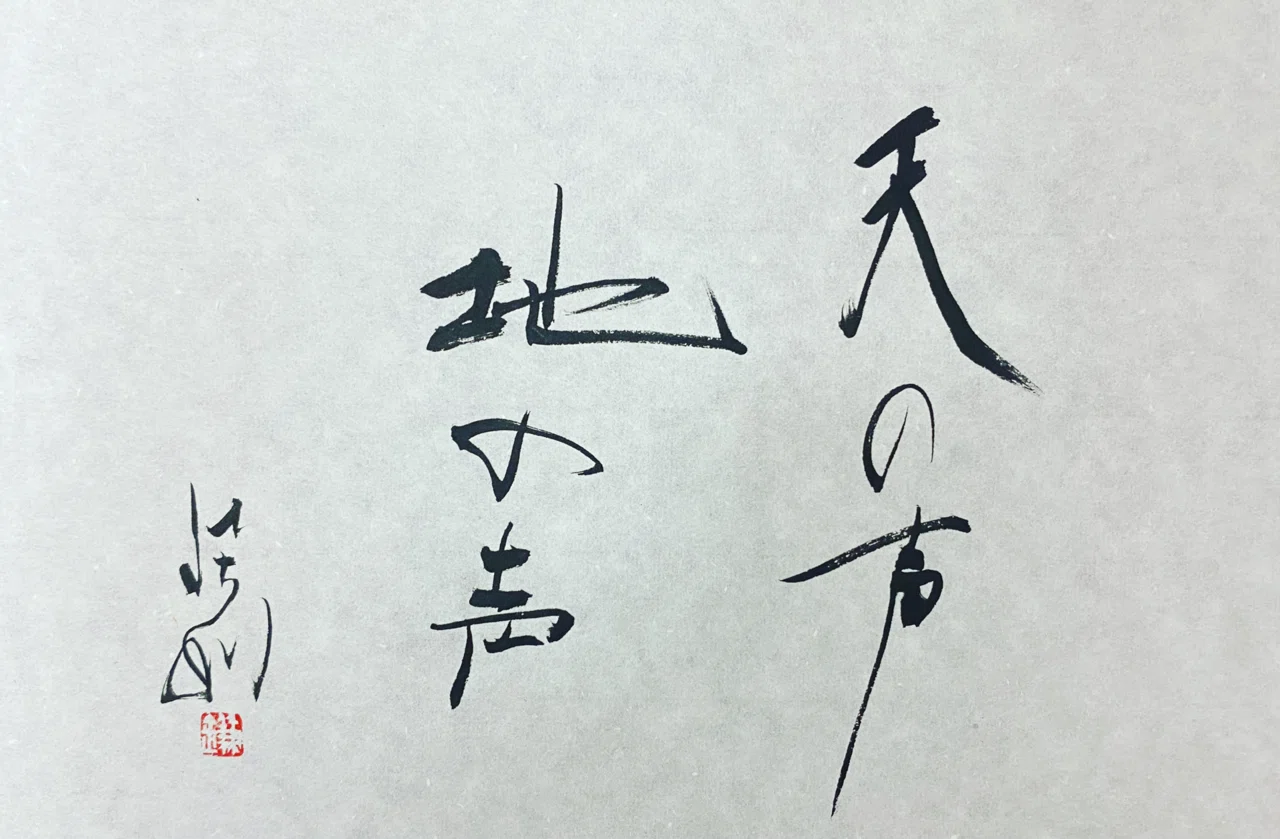 天の声
地の声